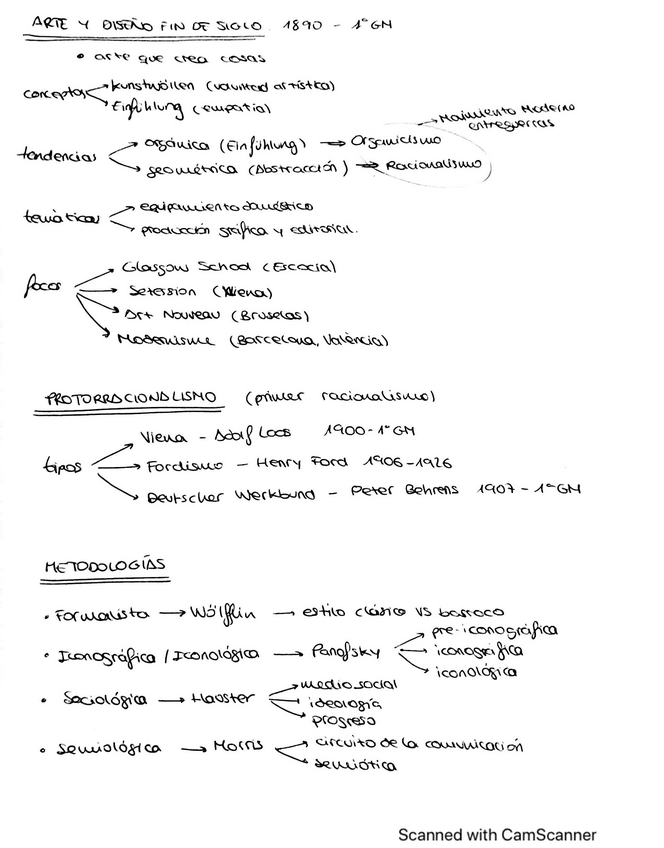 ARTE Y DISEÑO FIN DE SIGLO 1890 - 1ª GM
• arte que crea cosas
conceptos → kunstwöllen (voluntad artística)
→ Einfühlung (empatía)
→ Moimiento Moderno
entreguerras
tendencias → orgánica (Einfühlung) → Organicismo
→ geométrica (Abstracción) → Racionalismo
temáticas → equipamiento doméstico
→ producción gráfica y editorial.
focos → Glasgow School (Escocia)
→ Setession (Viena)
→ Art Nouveau (Bruselas)
→ Modernisme (Barcelona, València)
PROTORRACIONALISMO (primer racionalismo)
tipos → Viena - Adolf Loos 1900-1ª GM
→ Fordismo - Henry Ford 1906-1926
→ Deutscher Werkbund - Peter Behrens 1907 - 1ª GM
METODOLOGÍAS
• Formalista → Wölfflin → estilo clásico VS barroco
• Iconográfica / Iconológica → Panofsky → pre-iconográfica
→ iconográfica
→ iconológica
• Sociológica → Hauster → medio social
→ ideología
→ progreso
• Semiológica → Morris → circuito de la comunicación
→ semiótica
Scanned with CamScanner